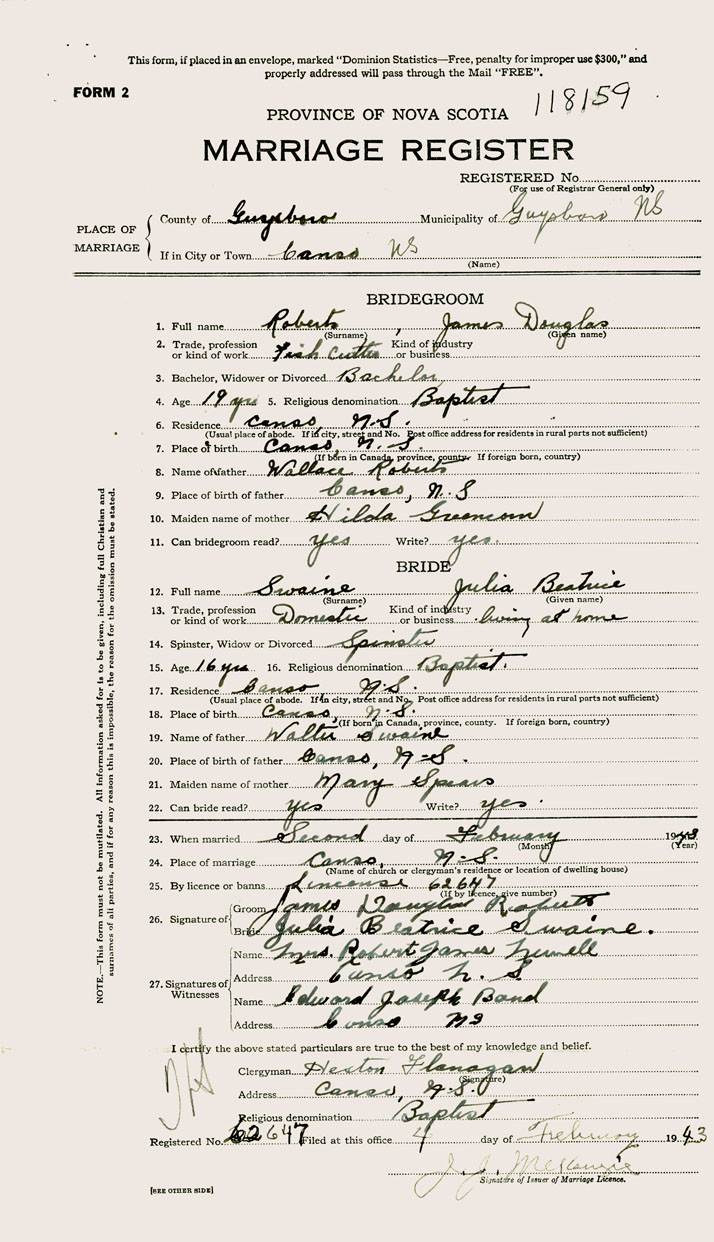 This form, if placed in an envelope, marked "Dominion Statistics—Free, penalty for improper use $300," and
properly addressed will pass through the Mail "FREE".
FORM 2
118159
PROVINCE OF NOVA SCOTIA
MARRIAGE REGISTER
REGISTERED No.
(For use of Registrar General only)
PLACE OF MARRIAGE
County of Guysboro Municipality of Guysboro NS
If in City or Town Canso NS
(Name)
BRIDEGROOM
1. Full name Roberts, James Douglas
(Surname) (Given name)
2. Trade, profession or kind of work Fish Cutter Kind of industry or business
3. Bachelor, Widower or Divorced Bachelor
4. Age 19 yrs 5. Religious denomination Baptist
6. Residence Canso, N.S.
(Usual place of abode. If in city, street and No. Post office address for residents in rural parts not sufficient)
7. Place of birth Canso, N.S.
(If born in Canada, province, county. If foreign born, country)
8. Name of father Wallace Roberts
9. Place of birth of father Canso, N.S
10. Maiden name of mother Hilda
11. Can bridegroom read? yes Write? yes.
BRIDE
12. Full name Swaine Julia Beatrice
(Surname) (Given name)
13. Trade, profession or kind of work Domestic Kind of industry or business living at home
14. Spinster, Widow or Divorced Spinster
15. Age 16 yrs 16. Religious denomination Baptist.
17. Residence Canso, N.S.
(Usual place of abode. If in city, street and No. Post office address for residents in rural parts not sufficient)
18. Place of birth Canso, N.S.
(If born in Canada, province, county. If foreign born, country)
19. Name of father Walter Swaine
20. Place of birth of father Canso, N.S.
21. Maiden name of mother Mary Spears
22. Can bride read? yes Write? yes.
23. When married Second day of February 1943
(Month) (Year)
24. Place of marriage Canso, N.S.
(Name of church or clergyman's residence or location of dwelling house)
25. By licence or banns Lincense 62647
(If by licence, give number)
26. Signature of
Groom James Douglas Roberts
Bride Julia Beatrice Swaine.
27. Signatures of Witnesses
Name Mrs. Robert James Newell
Address Canso N. S
Name Edward Joseph Bond
Address Canso NS
I certify the above stated particulars are true to the best of my knowledge and belief.
Clergyman Flanagan
(Signature)
Address Canso, N.S.
Religious denomination Baptist
Registered No. 62647 Filed at this office 4 day of February 1943
J. J. McKenzie
Signature of Issuer of Marriage Licence.
[SEE OTHER SIDE]
NOTE.—This form must not be mutilated. All information asked for is to be given, including full Christian and
surnames of all parties, and if for any reason this is impossible, the reason for the omission must be stated.